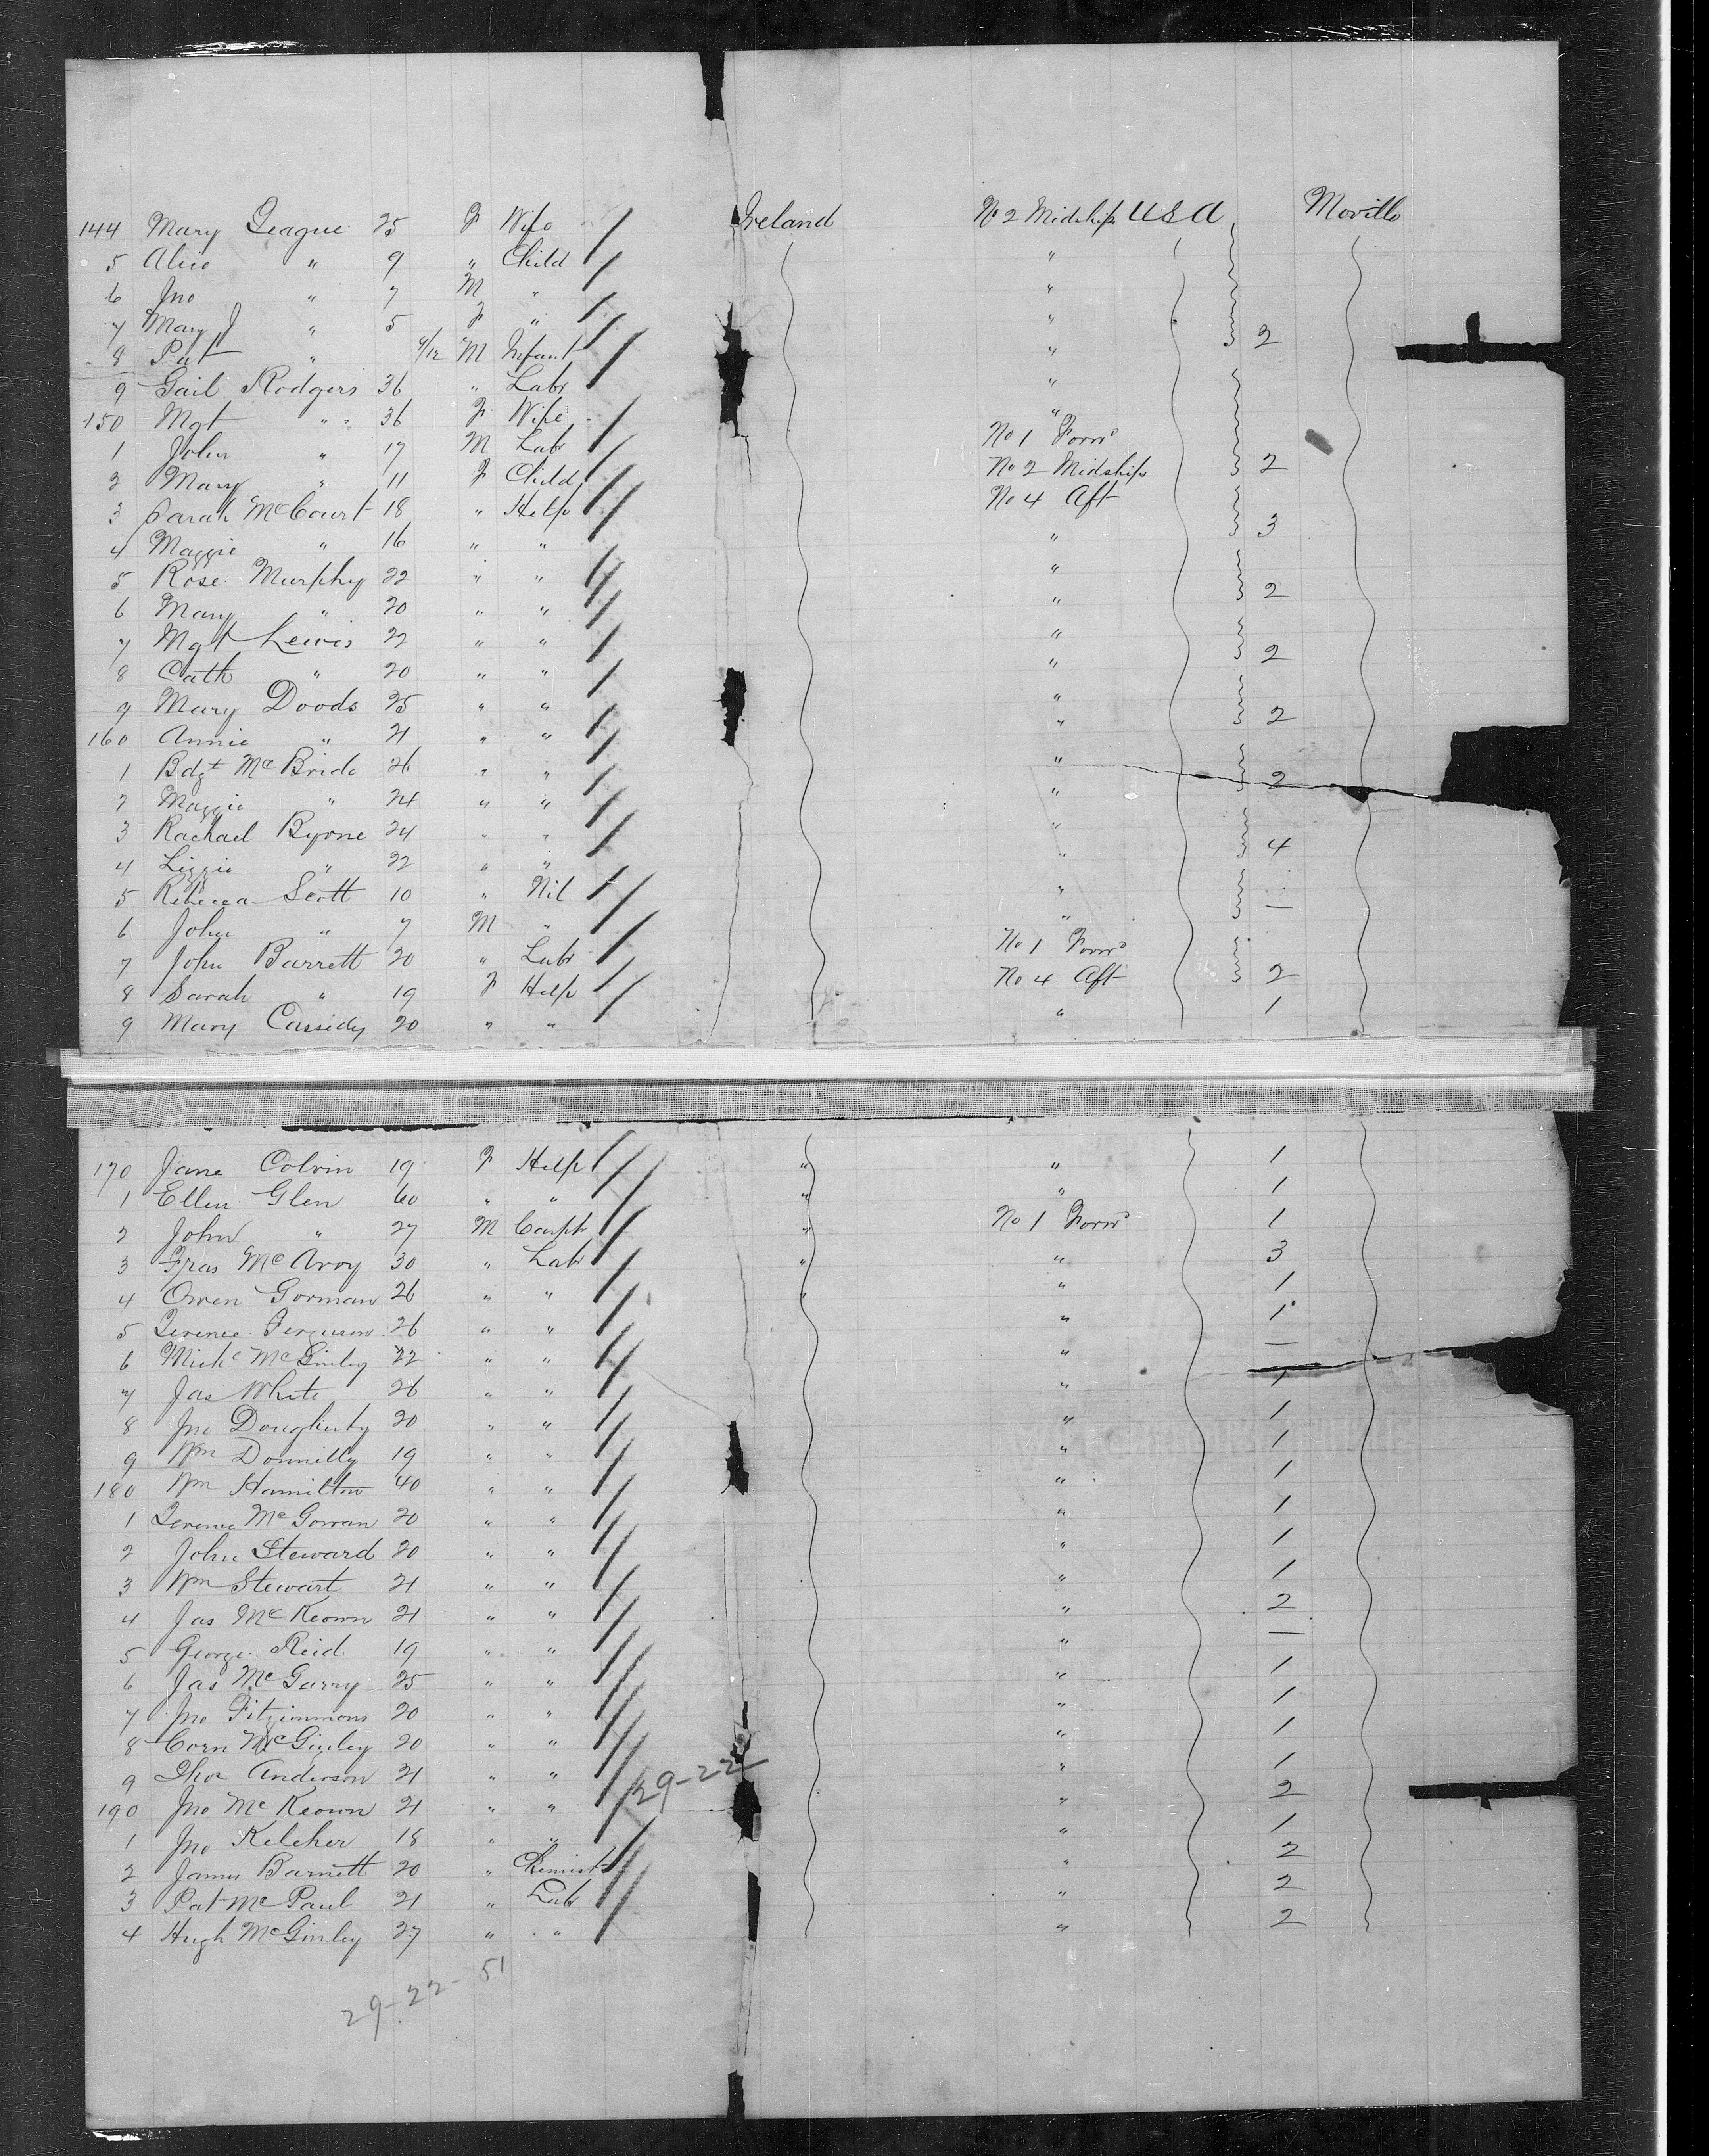 144 Mary League 25 F Wife Ireland No 2 Midship USA Moville
5 Alice " 9 " Child "
6 Jno " 7 M " "
7 Mary J " 5 F " "
8 Pat " 9/12 M Infant " 2
9 Gail Rodgers 36 " Labr "
150 Mgt " 36 F Wife "
1 John " 17 M Labr No 1 Forrd
2 Mary " 11 F Child No 2 Midship 2
3 Sarah McCourt 18 " Help No 4 Aft
4 Maggie " 16 " " " 3
5 Rose Murphy 22 " " "
6 Mary " 20 " " " 2
7 Mgt Lewis 22 " " "
8 Cath " 20 " " " 2
9 Mary Doods 25 " " "
160 Annie " 21 " " " 2
1 Bdgt McBride 26 " " "
2 Maggie " 24 " " " 2
3 Rachael Byrne 24 " " "
4 Lizzie " 22 " " " 4
5 Rebecca Scott 10 " Nil "
6 John " 7 M " " —
7 John Barrett 20 " Labr No 1 Forrd
8 Sarah " 19 F Help No 4 Aft 2
9 Mary Cassidy 20 " " " 1
170 Jane Colvin 19 F Help " " 1
1 Ellen Glen 60 " " " " 1
2 John " 27 M Carptr " No 1 Forrd 1
3 Fras McAvoy 30 " Labr " " 3
4 Owen Gorman 26 " " " " 1
5 Terence Ferguson 26 " " " 1
6 Michl McGinley 22 " " " —
7 Jas White 26 " " " 1
8 Jno Dougherty 20 " " " 1
9 Wm Donnilly 19 " " " 1
180 Wm Hamilton 40 " " " 1
1 Terence McGowan 20 " " " 1
2 John Steward 20 " " " 1
3 Wm Stewart 21 " " " 1
4 Jas McKeown 21 " " " 2
5 George Reid 19 " " " —
6 Jas McGarry 25 " " " 1
7 Jno Fitzimmons 20 " " " 1
8 Corn McGinley 20 " " " 1
9 Thos Anderson 21 " " 29-22 " 1
190 Jno McKeown 21 " " " 2
1 Jno Kelcher 18 " " " 1
2 James Barnett 20 " Chemist " 2
3 Pat McPaul 21 " Labr " 2
4 Hugh McGinley 27 " " " 2
29-22-51